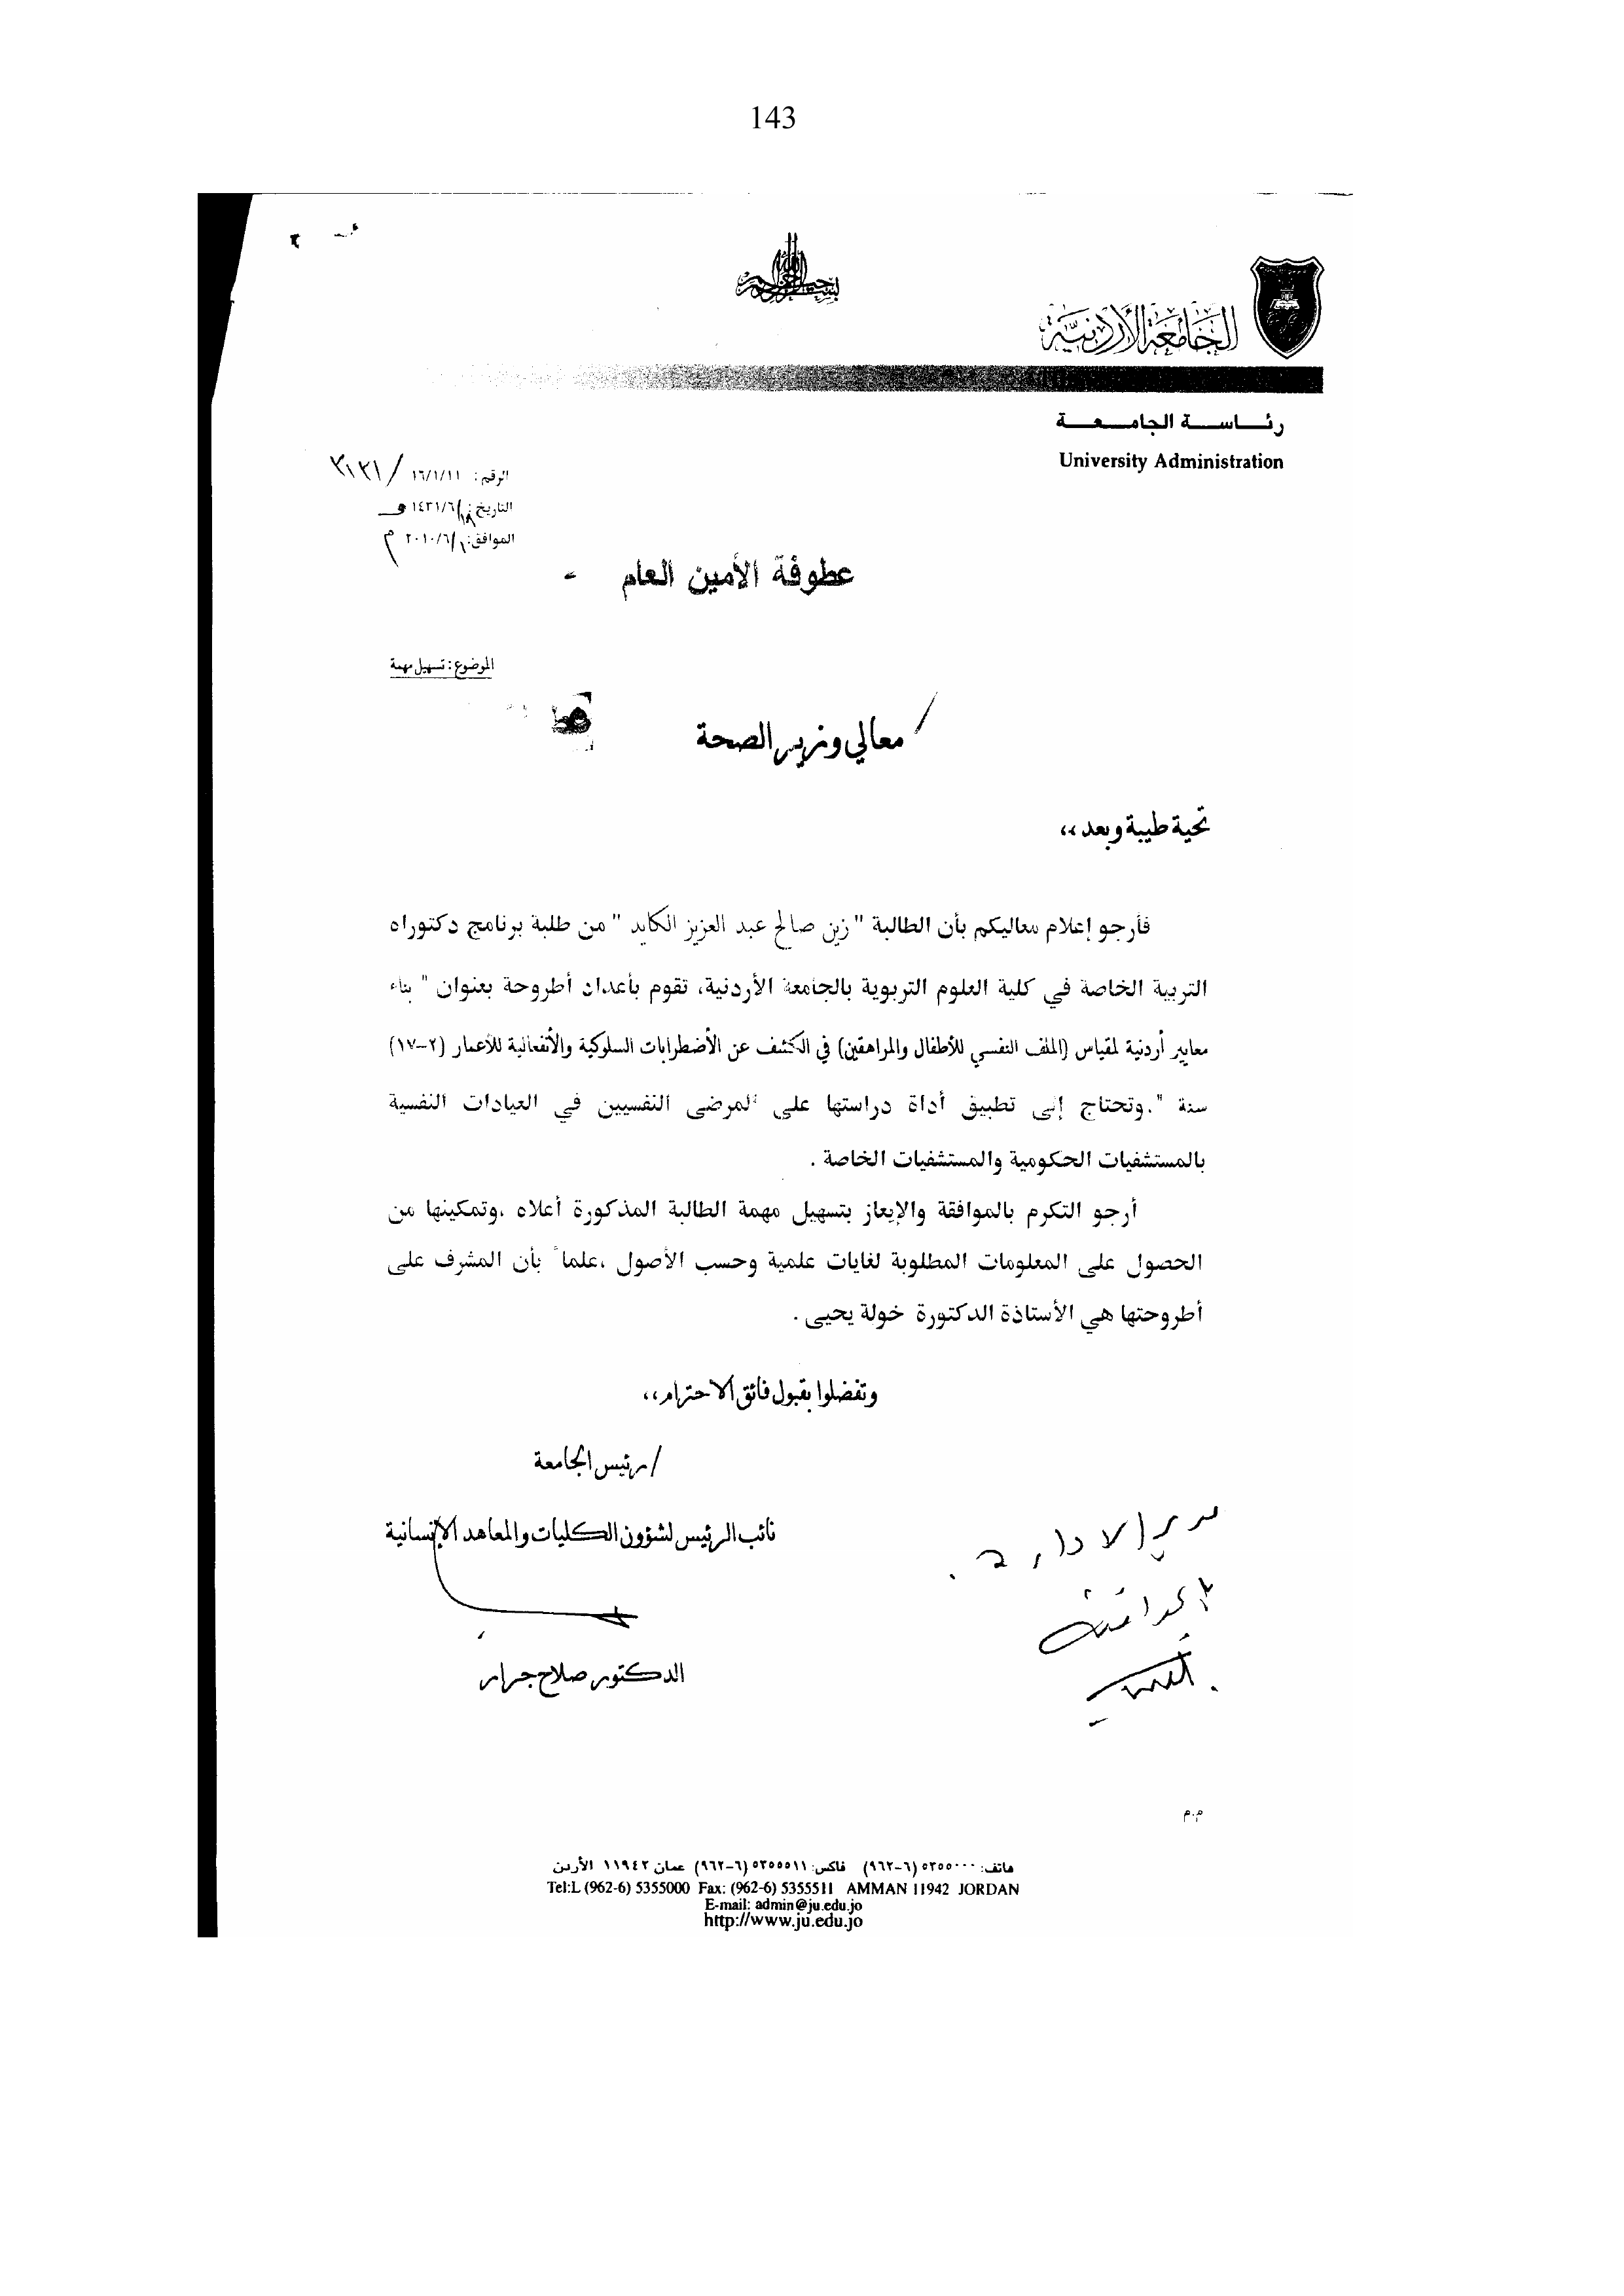 143
بسم الله الرحمن الرحيم
الجامعة الأردنية
رئاسة الجامعة
University Administration
الرقم: ١٦/١/١١/
التاريخ: ١٨/٦/١٤٣١ هـ
الموافق: ١/٦/٢٠١٠ م
عطوفة الأمين العام
الموضوع: تسهيل مهمة
معالي وزير الصحة
تحية طيبة وبعد،،
فأرجو إعلام معاليكم بأن الطالبة "زين صالح عبد العزيز الكايد" من طلبة برنامج دكتوراه
التربية الخاصة في كلية العلوم التربوية بالجامعة الأردنية، تقوم بأعداد أطروحة بعنوان " بناء
معايير أردنية لمقياس (الملف النفسي للأطفال والمراهقين) في الكشف عن الأضطرابات السلوكية والأنفعالية للأعمار (٢-١٧)
سنة ".وتحتاج إلى تطبيق أداة دراستها على المرضى النفسيين في العيادات النفسية
بالمستشفيات الحكومية والمستشفيات الخاصة .
أرجو التكرم بالموافقة والإيعاز بتسهيل مهمة الطالبة المذكورة أعلاه ،وتمكينها من
الحصول على المعلومات المطلوبة لغايات علمية وحسب الأصول ،علماً بأن المشرف على
أطروحتها هي الأستاذة الدكتورة خولة يحيى .
وتفضلوا بقبول فائق الاحترام،،
/رئيس الجامعة
نائب الرئيس لشؤون الكليات والمعاهد الإنسانية
الدكتور صلاح جرار
مدير الادارة
م.م
هاتف: ٥٣٥٥٠٠٠ (٦-٩٦٢) فاكس: ٥٣٥٥٥١١ (٦-٩٦٢) عمان ١١٩٤٢ الأردن
Tel:L (962-6) 5355000 Fax: (962-6) 5355511 AMMAN 11942 JORDAN
E-mail: admin@ju.edu.jo
http://www.ju.edu.jo